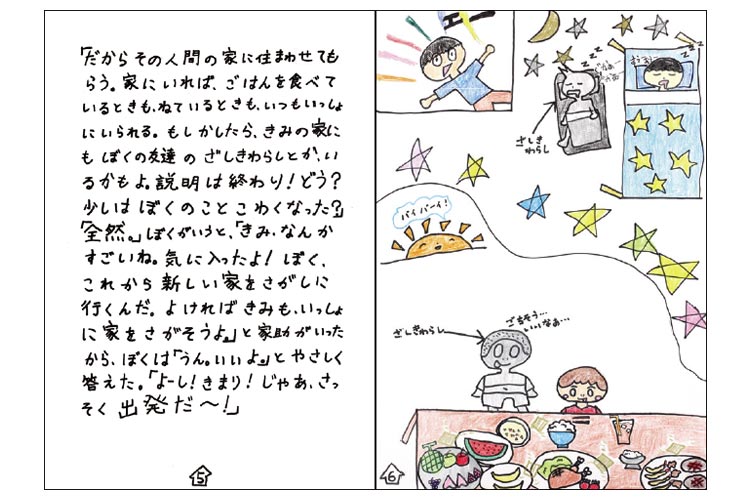 「だからその人間の家に住まわせても
らう。家にいれば、ごはんを食べて
いるときも、ねているときも、いつもいっしょ
にいられる。もしかしたら、きみの家に
もぼくの友達のざしきわらしとか、い
るかもよ。説明は終わり！どう？
少しはぼくのことこわくなった？」
「全然。」ぼくがいうと、「きみ、なんか
すごいね。気に入ったよ！ぼく、
これから新しい家をさがしに
行くんだ。よければきみも、いっしょ
に家をさがそうよ。」と家助がいった
から、ぼくは「うん。いいよ。」とやさしく
答えた。「よーし！きまり！じゃあ、さっ
そく出発だ〜！」
5
zzz
zzz
ざしき
わらし
バイバーイ！
ごちそう…
いいなあ…
ざしきわらし
6